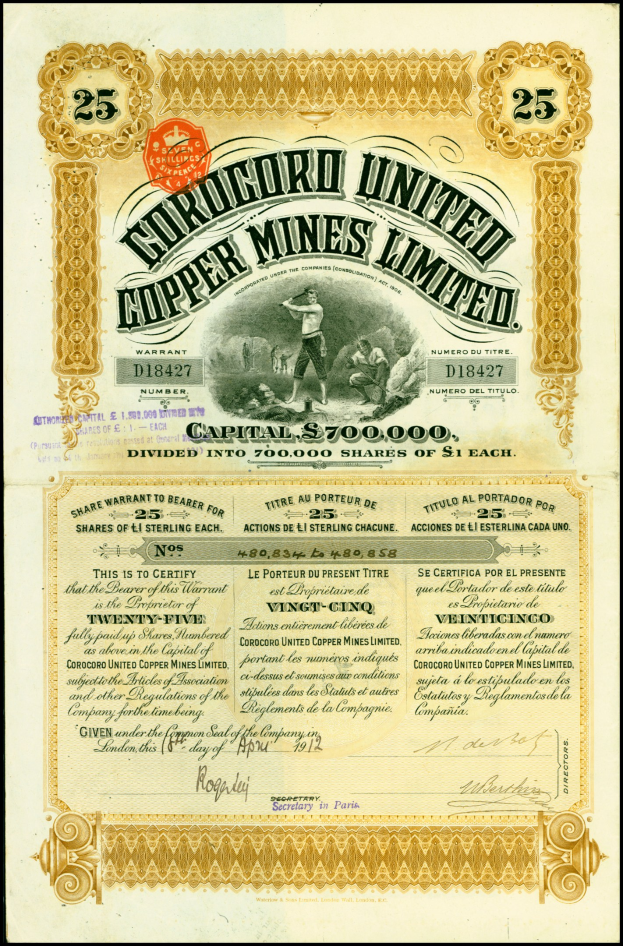 25
25
SEVEN
SHILLINGS
SIX PENCE
COROCORO UNITED
COPPER MINES LIMITED.
INCORPORATED UNDER THE COMPANIES (CONSOLIDATION) ACT, 1908.
WARRANT
D18427
NUMBER.
NUMERO DU TITRE.
D18427
NUMERO DEL TITULO.
AUTHORISED CAPITAL £ 1,500,000 DIVIDED INTO
SHARES OF £ 1.— EACH
CAPITAL £700,000.
DIVIDED INTO 700,000 SHARES OF £1 EACH.
SHARE WARRANT TO BEARER FOR
25
SHARES OF £1 STERLING EACH.
TITRE AU PORTEUR DE
25
ACTIONS DE £1 STERLING CHACUNE.
TITULO AL PORTADOR POR
25
ACCIONES DE £1 ESTERLINA CADA UNO.
Nos 480,834 to 480,858
THIS IS TO CERTIFY
that the Bearer of this Warrant
is the Proprietor of
TWENTY-FIVE
fully paid up Shares, Numbered
as above, in the Capital of
COROCORO UNITED COPPER MINES LIMITED,
subject to the Articles of Association
and other Regulations of the
Company for the time being.
LE PORTEUR DU PRESENT TITRE
est Propriétaire de
VINGT-CINQ
Actions entièrement libérées de
COROCORO UNITED COPPER MINES LIMITED,
portant les numéros indiqués
ci-dessus et soumises aux conditions
stipulées dans les Statuts et autres
Règlements de la Compagnie.
SE CERTIFICA POR EL PRESENTE
que el Portador de este titulo
es Propietario de
VEINTICINCO
Acciones liberadas con el numero
arriba indicado en el Capital de
COROCORO UNITED COPPER MINES LIMITED,
sujeta á lo estipulado en los
Estatutos y Reglamentos de la
Compañia.
GIVEN under the Common Seal of the Company, in
London, this 18th day of April 1912
DIRECTORS.
SECRETARY.
Secretary in Paris